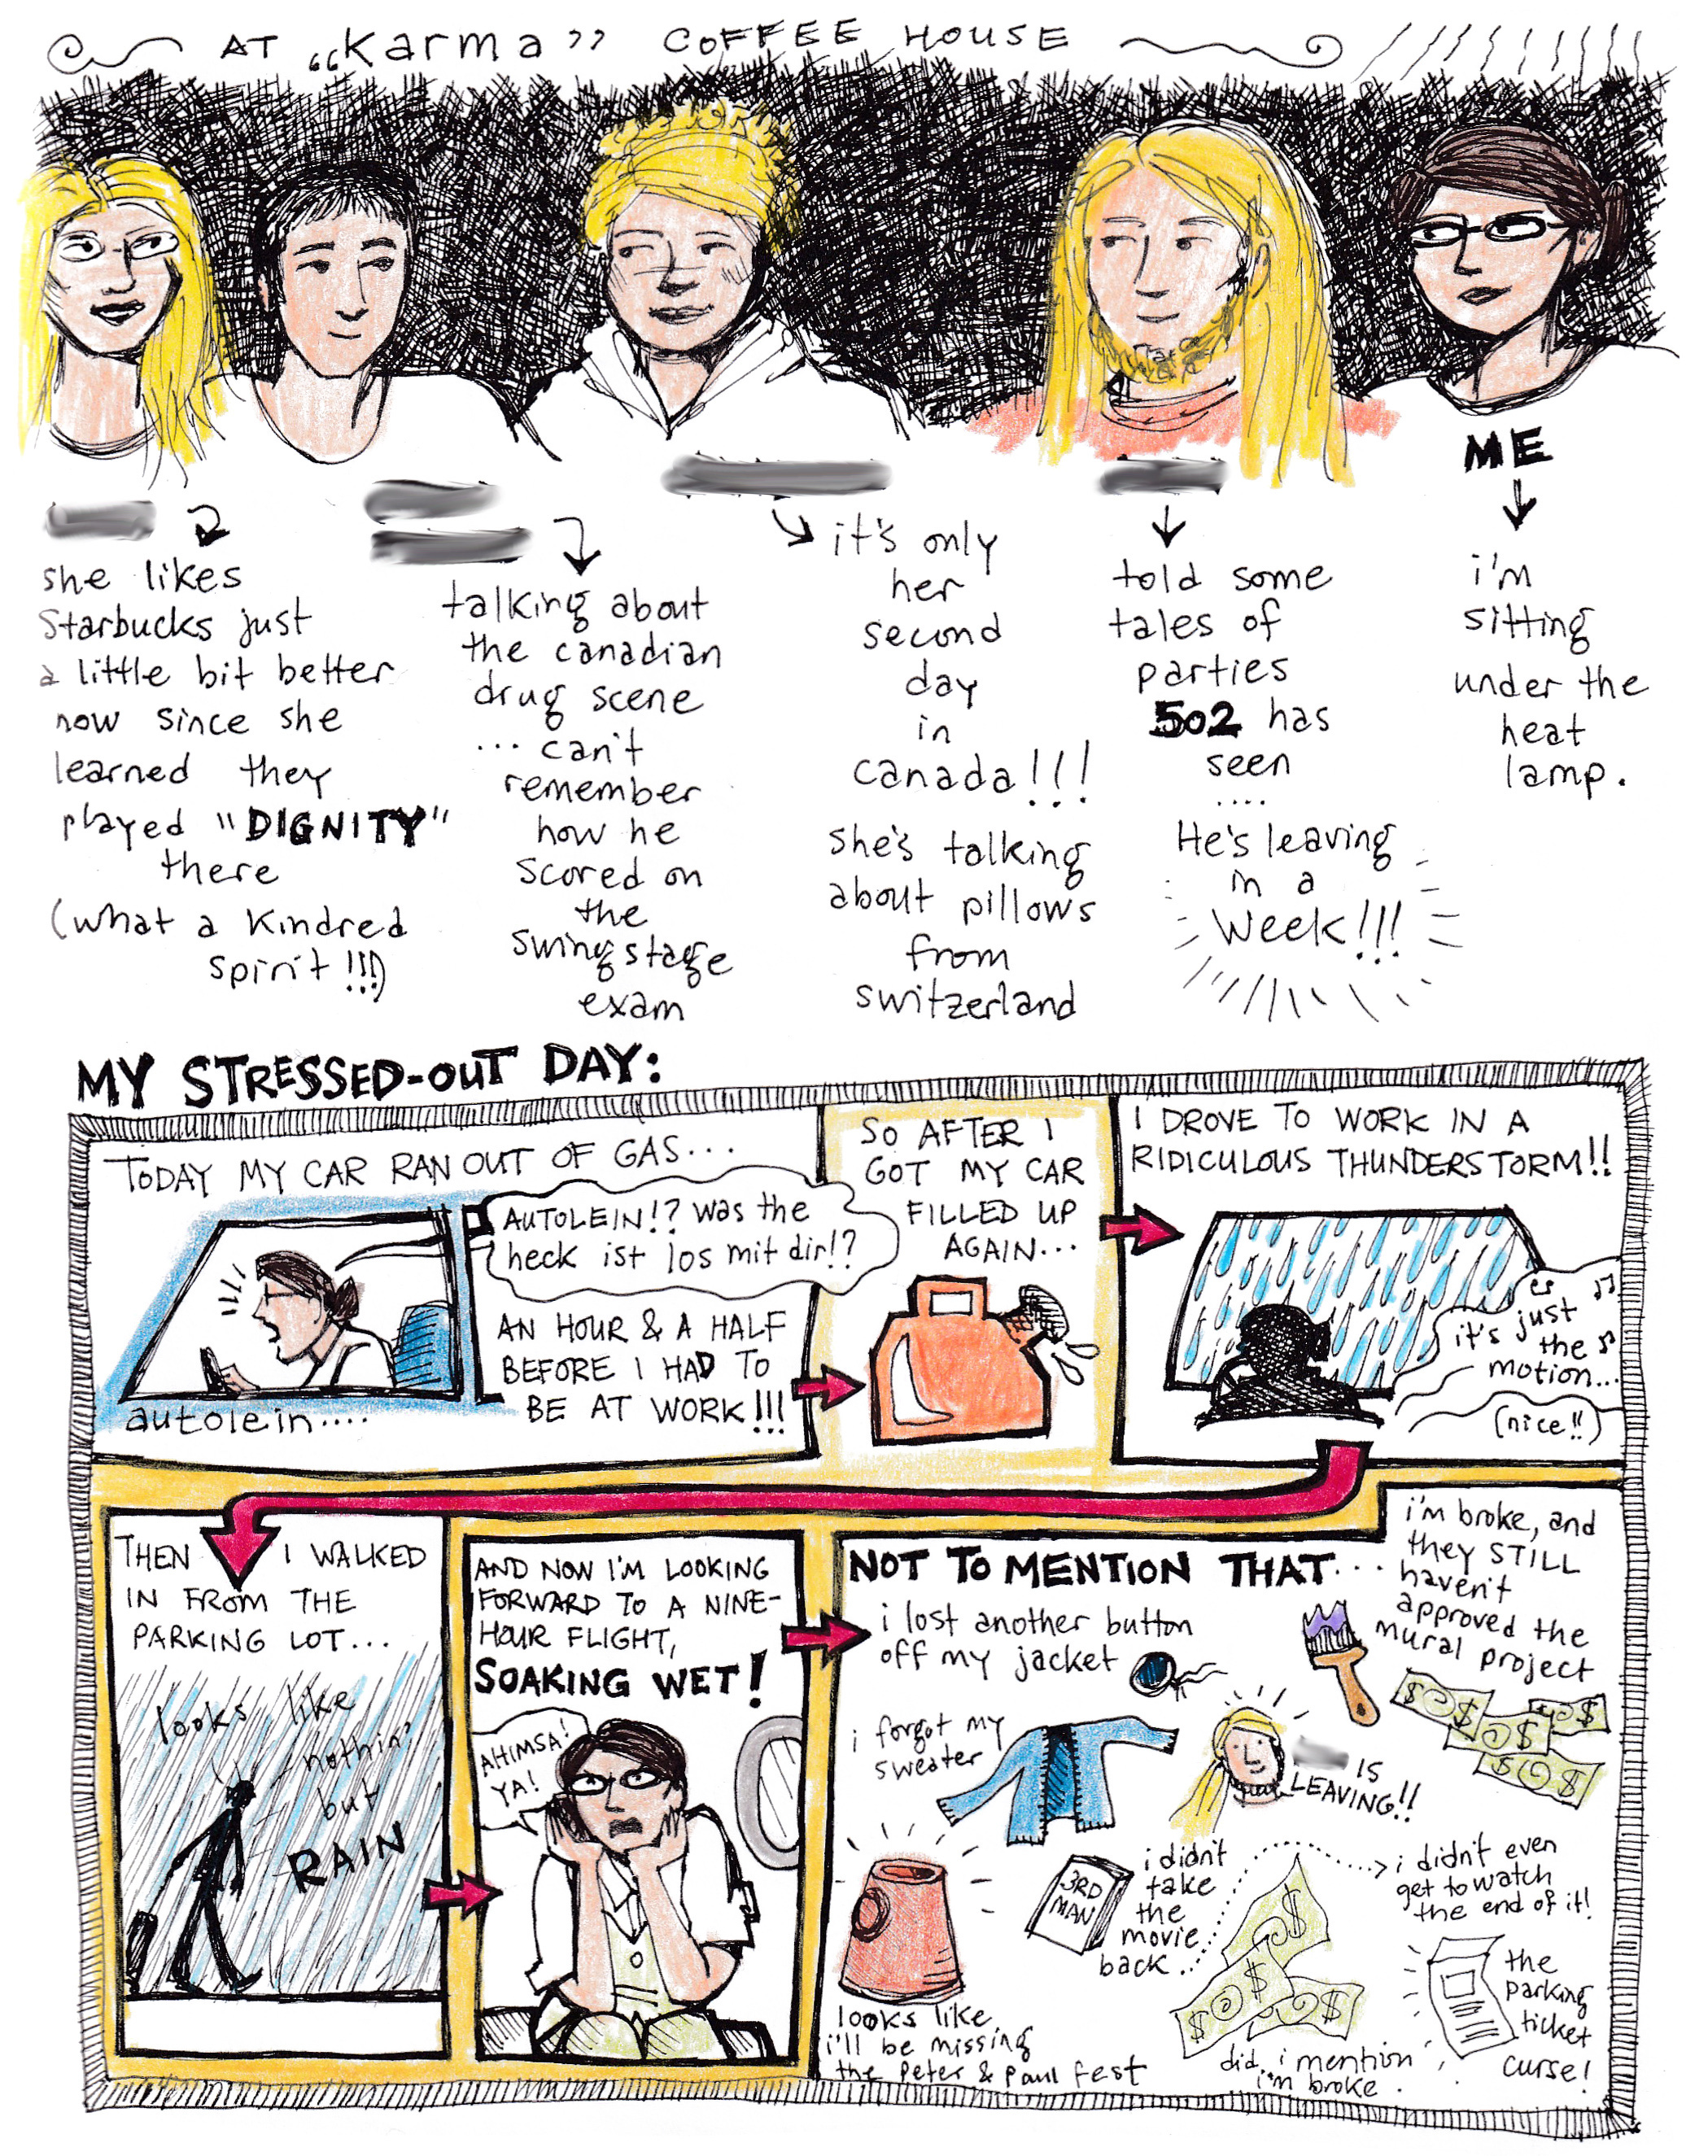 AT "Karma" COFFEE HOUSE
she likes
Starbucks just
a little bit better
now since she
learned they
played "DIGNITY"
there
(what a kindred
spirit!!!)
talking about
the canadian
drug scene
... can't
remember
how he
scored on
the
swingstage
exam
it's only
her
second
day
in
canada!!!
she's talking
about pillows
from
switzerland
told some
tales of
parties
502 has
seen
....
He's leaving
in a
week!!!
ME
i'm
sitting
under the
heat
lamp.
MY STRESSED-OUT DAY:
TODAY MY CAR RAN OUT OF GAS...
AUTOLEIN!? was the
heck ist los mit dir!?
autolein....
AN HOUR & A HALF
BEFORE I HAD TO
BE AT WORK!!!
SO AFTER I
GOT MY CAR
FILLED UP
AGAIN...
I DROVE TO WORK IN A
RIDICULOUS THUNDERSTORM!!
it's just
the
motion...
(nice!!)
THEN I WALKED
IN FROM THE
PARKING LOT...
looks like
nothin'
but
RAIN
AND NOW I'M LOOKING
FORWARD TO A NINE-
HOUR FLIGHT,
SOAKING WET!
AHIMSA!
YA!
NOT TO MENTION THAT...
i lost another button
off my jacket
i'm broke, and
they STILL
haven't
approved the
mural project
i forgot my
sweater
IS
LEAVING!!
3RD
MAN
i didn't
take
the
movie
back..
i didn't even
get to watch
the end of it!
looks like
i'll be missing
the Peter & Paul fest
did i mention
i'm broke.
the
parking
ticket
curse!